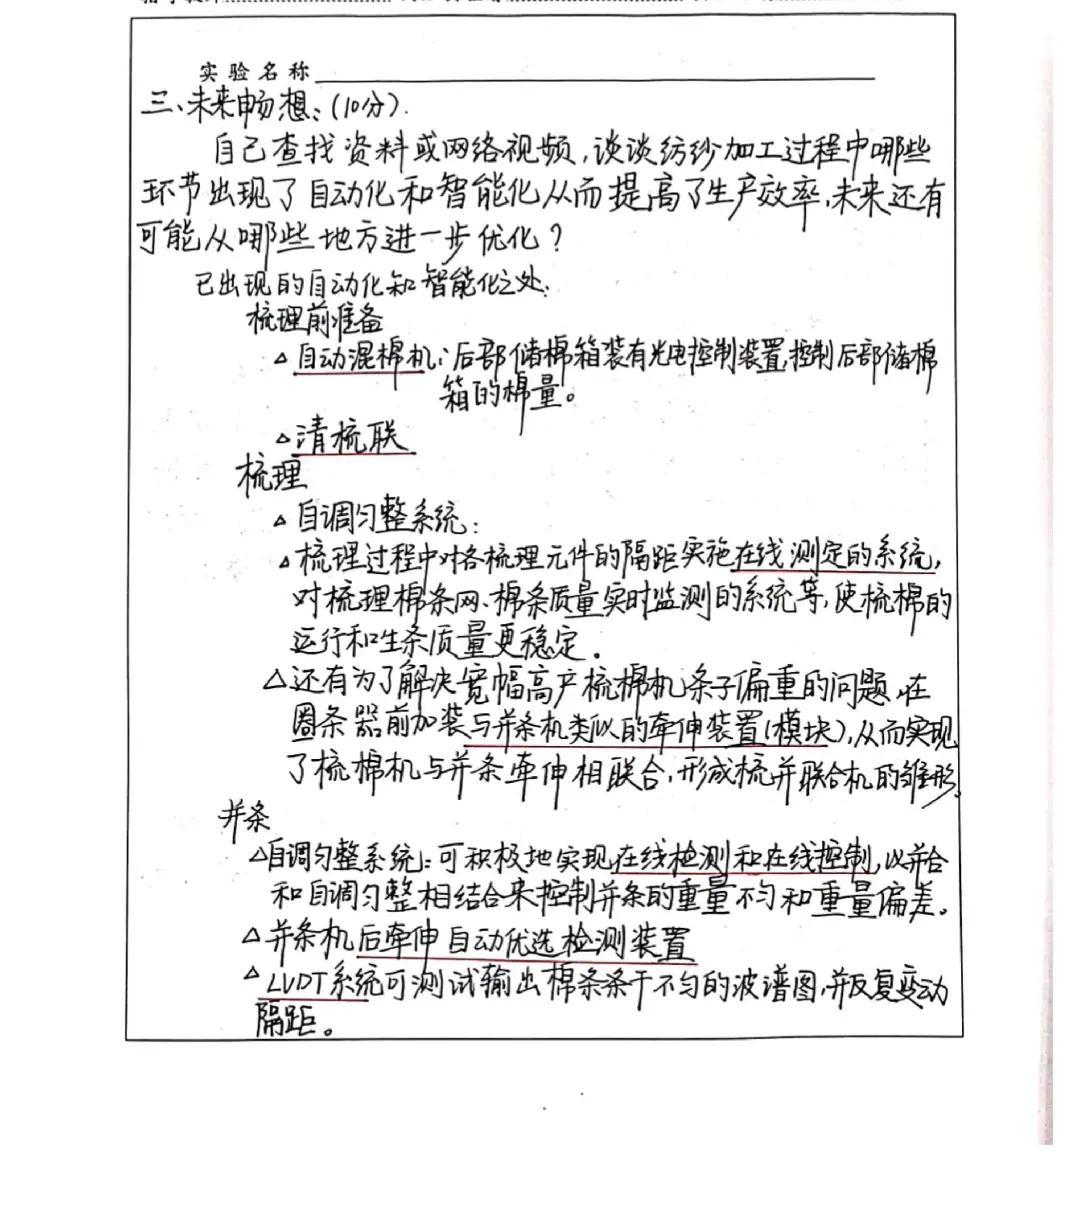 实验名称
三、未来畅想：(10分).
自己查找资料或网络视频，谈谈纺纱加工过程中哪些
环节出现了自动化和智能化从而提高了生产效率，未来还有
可能从哪些地方进一步优化？
已出现的自动化和智能化之处：
梳理前准备
△自动混棉机：后部储棉箱装有光电控制装置，控制后部储棉
箱的棉量。
△清梳联
梳理
△自调匀整系统：
△梳理过程中对各梳理元件的隔距实施在线测定的系统，
对梳理棉条网、棉条质量实时监测的系统等，使梳棉的
运行和生条质量更稳定。
△还有为了解决宽幅高产梳棉机条子偏重的问题，在
圈条器前加装与并条机类似的牵伸装置(模块)，从而实现
了梳棉机与并条牵伸相联合，形成梳并联合机的雏形。
并条
△自调匀整系统：可积极地实现在线检测和在线控制，以并合
和自调匀整相结合来控制并条的重量不匀和重量偏差。
△并条机后牵伸自动优选检测装置
△LVDT系统可测试输出棉条条干不匀的波谱图，并反复变动
隔距。